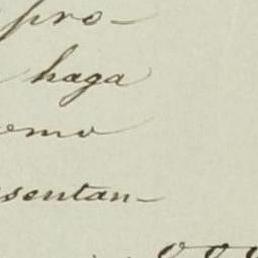 pro-
haga
emo
sentan-